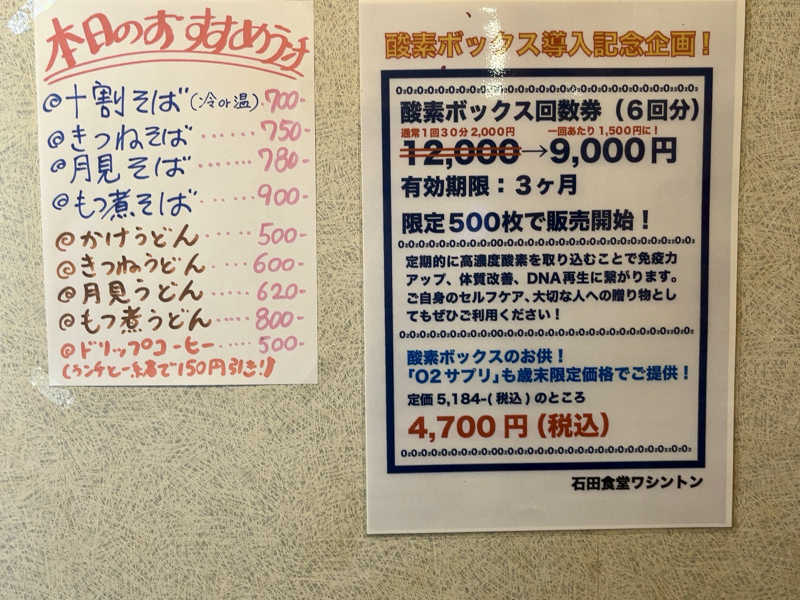 本日のおすすめランチ
@十割そば(冷or温).700-
@きつねそば……750-
@月見そば……780-
@もつ煮そば……900-
@かけうどん……500-
@きつねうどん……600-
@月見うどん……620-
@もつ煮うどん……800-
@ドリップコーヒー……500-
(ランチと一緒で150円引き!)
酸素ボックス導入記念企画！
酸素ボックス回数券（6回分）
通常1回30分2,000円 一回あたり1,500円に！
12,000→9,000円
有効期限：3ヶ月
限定500枚で販売開始！
定期的に高濃度酸素を取り込むことで免疫力
アップ、体質改善、DNA再生に繋がります。
ご自身のセルフケア、大切な人への贈り物とし
てもぜひご利用ください！
酸素ボックスのお供！
「O2サプリ」も歳末限定価格でご提供！
定価5,184-(税込)のところ
4,700円（税込）
石田食堂ワシントン